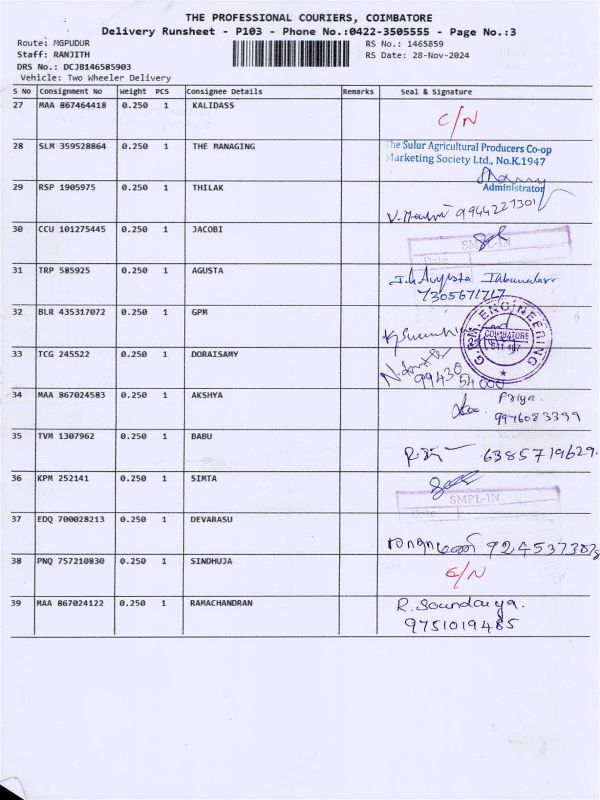 THE PROFESSIONAL COURIERS, COIMBATORE
Delivery Runsheet - P103 - Phone No.:0422-3505555 - Page No.:3
Route: MGPUDUR RS No.: 1465859
Staff: RANJITH RS Date: 28-Nov-2024
DRS No.: DCJB146585903
Vehicle: Two Wheeler Delivery
S No Consignment No Weight PCS Consignee Details Remarks Seal & Signature
27 MAA 867464418 0.250 1 KALIDASS
C/N
28 SLM 359528864 0.250 1 THE MANAGING The Sulur Agricultural Producers Co-op
Marketing Society Ltd., No.K.1947
Administrator
29 RSP 1905975 0.250 1 THILAK
9944227301
30 CCU 101275445 0.250 1 JACOBI
SMPL-IN
Date
31 TRP 585925 0.250 1 AGUSTA
7305671767
32 BLR 435317072 0.250 1 GPM
ENGINEERING
COIMBATORE
33 TCG 245522 0.250 1 DORAISAMY
99430 54000
34 MAA 867024583 0.250 1 AKSHYA Priya.
9976083399
35 TVM 1307962 0.250 1 BABU
6385719629.
36 KPM 252141 0.250 1 SIMTA
SMPL-IN
Date
37 EDQ 700028213 0.250 1 DEVARASU
38 PNQ 757210830 0.250 1 SINDHUJA
C/N
39 MAA 867024122 0.250 1 RAMACHANDRAN R. Soundarya.
9751019485